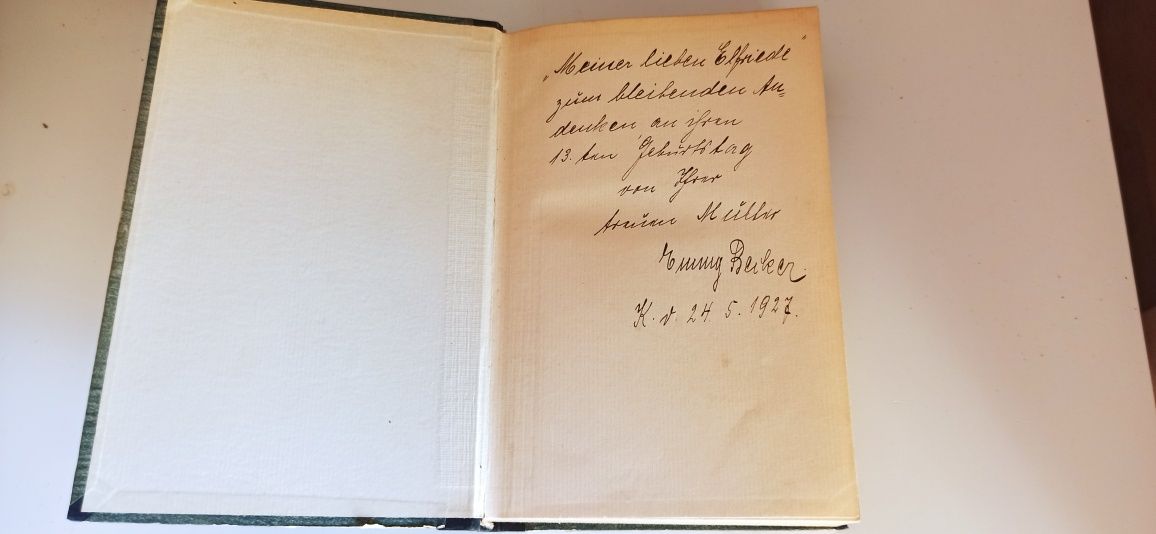 „Meiner lieben Elfriede“
zum bleibenden An=
denken an ihren
13. ten Geburtstag
von Ihrer
treuen Mutter
Emmy Becker
K. d. 24. 5. 1927.